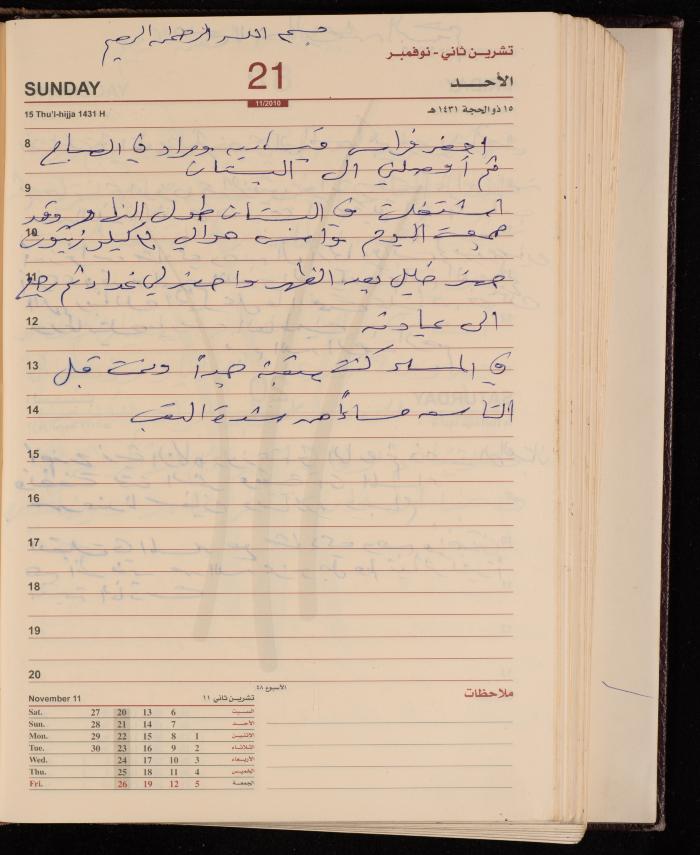 بسم الله الرحمن الرحيم
تشرين ثاني - نوفمبر
SUNDAY 21 الأحــد
11/2010
15 Thu'l-hijja 1431 H ١٥ ذو الحجة ١٤٣١ هـ
8 احضر فراس ومراد في الصباح
ثم أوصلني الى البستان
9
اشتغلت في البستان طول النهار وقد
10 جمعت اليوم حوالي كيلو زيتون
11 حضر خليل بعد الظهر واحضر لي غداء ثم رجع
12 الى عيادته
13 في المساء كنت متعبة جداً ونمت قبل
14 التاسعة مساءاً من شدة التعب
15
16
17
18
19
20
الأسبوع ٤٨
ملاحظات
November 11 تشرين ثاني ١١
Sat. 27 20 13 6 السبت
Sun. 28 21 14 7 الأحد
Mon. 29 22 15 8 1 الاثنين
Tue. 30 23 16 9 2 الثلاثاء
Wed. 24 17 10 3 الأربعاء
Thu. 25 18 11 4 الخميس
Fri. 26 19 12 5 الجمعة